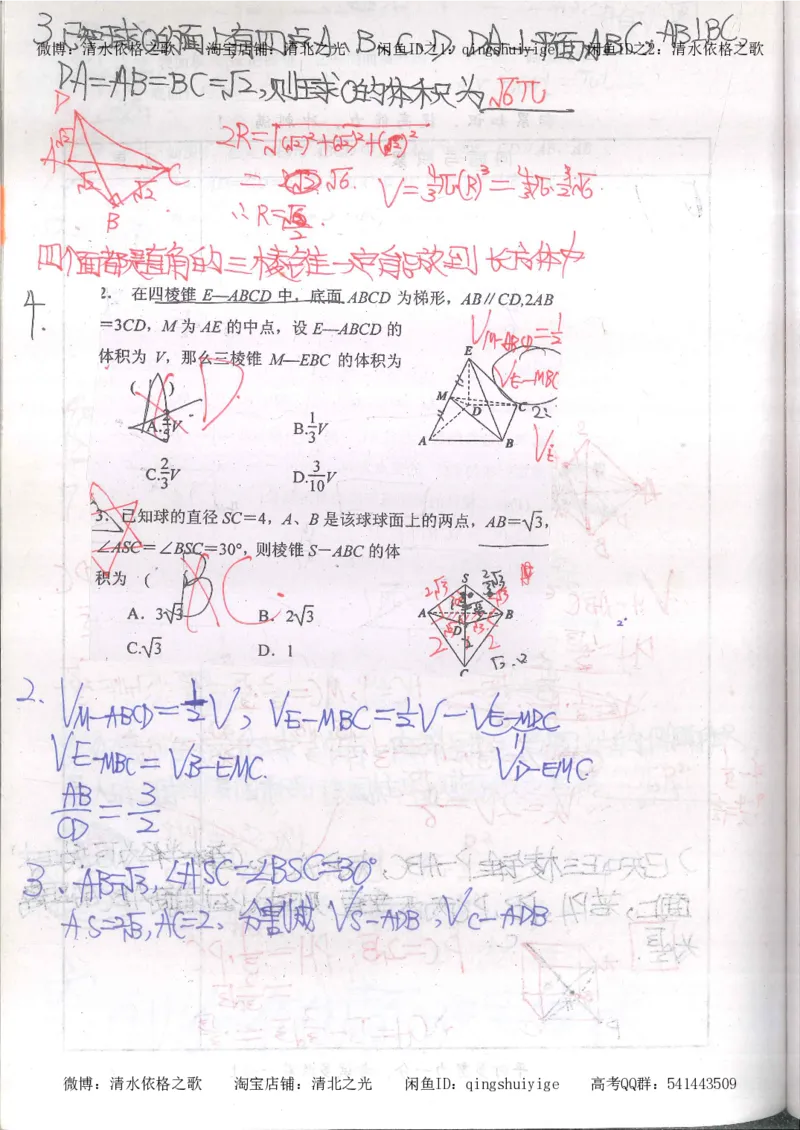 3.已知球O的面上有四点A、B、C、D,DA⊥平面ABC,AB⊥BC,
微博:清水依格之歌 淘宝店铺:清北之光 闲鱼ID之1:qingshuiyige 闲鱼ID之2:清水依格之歌
DA=AB=BC=√2,则球O的体积为 √6π
D
√2
A
√2
√2
C
B
2R=√(√2)²+(√2)²+(√2)²
= √6.
∴R=√6/2.
V=4/3π(R)³=
四个面都是直角的三棱锥一定能放到长方体中
4.
2. 在四棱锥 E—ABCD 中,底面 ABCD 为梯形,AB∥CD,2AB
=3CD,M 为 AE 的中点,设 E—ABCD 的
体积为 V,那么三棱锥 M—EBC 的体积为
( ) D
A.2/5V B.1/3V
C.2/3V D.3/10V
VM-ABCD=1/2
VE-MBC
E
M
D
C
A
B
3. 已知球的直径 SC=4,A、B 是该球球面上的两点,AB=√3,
∠ASC=∠BSC=30°,则棱锥 S-ABC 的体
积为 ( ) C
A.3√3 B.2√3
C.√3 D.1
S
2√3
A
B
D
2
2
C
√3
2. VM-ABCD=1/2V,VE-MBC=1/2V-VE-MDC
VE-MBC=VB-EMC. VD-EMC
AB/CD=3/2
3. AB=√3,∠ASC=∠BSC=30°
AS=2√3,AC=2. 分割成 VS-ADB,VC-ADB
微博:清水依格之歌 淘宝店铺:清北之光 闲鱼ID:qingshuiyige 高考QQ群:541443509